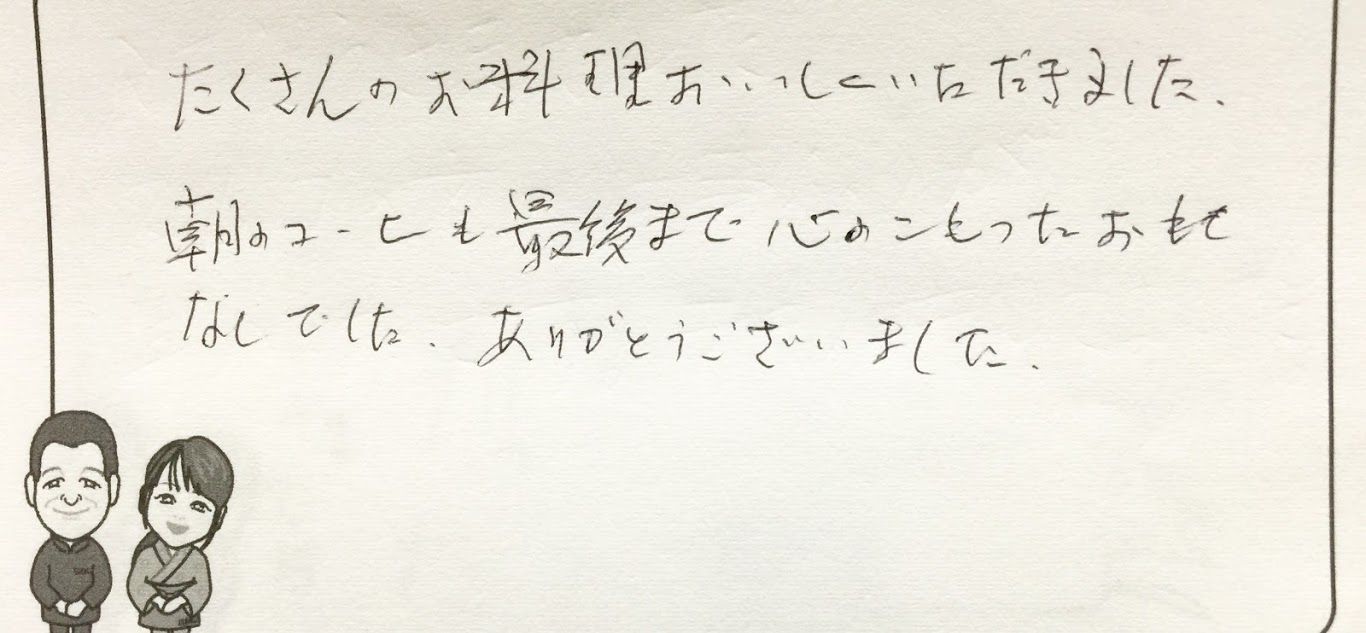 たくさんのお料理おいしくいただきました.
朝のコーヒも最後まで心のこもったおもて
なしでした. ありがとうございました.